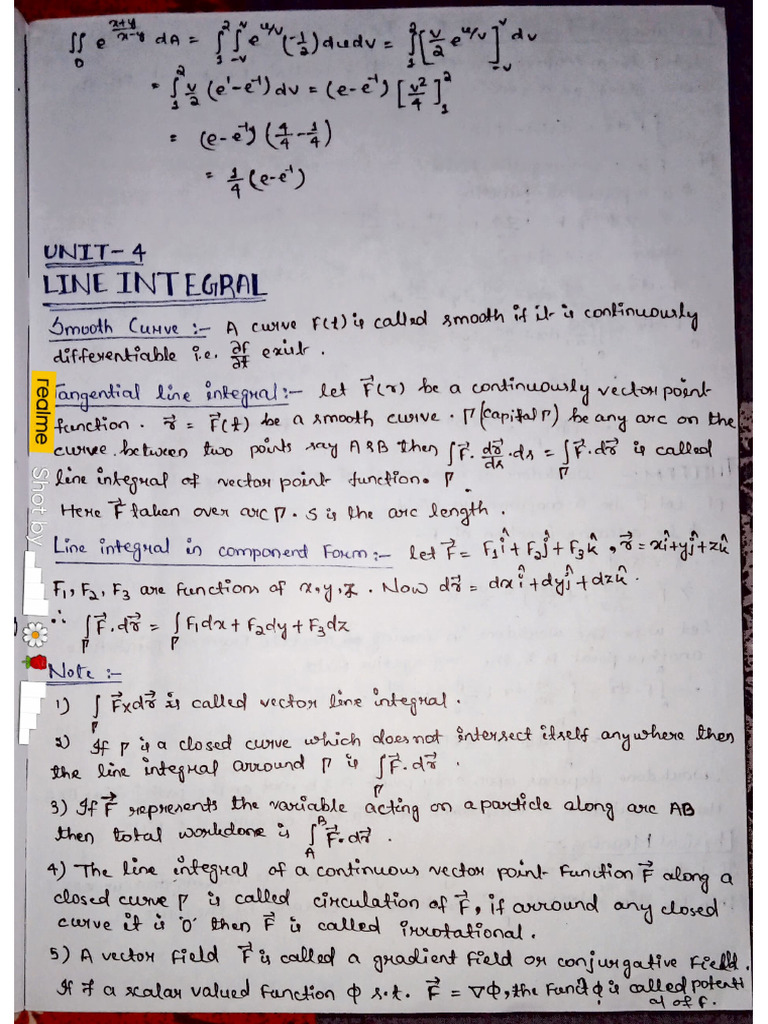 ∬_D e^{(x+y)/(x-y)} dA = ∫_1^2 ∫_{-v}^{v} e^{u/v} (-1/2) du dv = ∫_1^2 [v/2 e^{u/v}]_{-v}^{v} dv
= ∫_1^2 v/2 (e^1 - e^{-1}) dv = (e - e^{-1}) [v²/4]_1^2
= (e - e^{-1}) (4/4 - 1/4)
= 3/4 (e - e^{-1})
UNIT-4
LINE INTEGRAL
Smooth Curve :- A curve F(t) is called smooth if it is continuously
differentiable i.e. ∂f/∂t exist.
Tangential line integral:- let F⃗(r) be a continuously vector point
function. r⃗ = F⃗(t) be a smooth curve. Γ (capital Γ) be any arc on the
curve between two points say A & B then ∫_Γ F⃗. dr⃗/ds .ds = ∫_Γ F⃗.dr⃗ is called
line integral of vector point function.
Here F⃗ taken over arc Γ. S is the arc length.
Line integral in component Form:- let F⃗ = F₁î + F₂ĵ + F₃k̂, r⃗ = xî+yĵ+zk̂
F₁, F₂, F₃ are functions of x, y, z. Now dr⃗ = dxî + dyĵ + dzk̂.
∴ ∫_Γ F⃗.dr⃗ = ∫_Γ F₁dx + F₂dy + F₃dz
Note :-
1) ∫_Γ F⃗×dr⃗ is called vector line integral.
2) If Γ is a closed curve which does not intersect itself anywhere then
the line integral arround Γ is ∫_Γ F⃗.dr⃗.
3) If F⃗ represents the variable acting on a particle along arc AB
then total workdone is ∫_A^B F⃗.dr⃗.
4) The line integral of a continuous vector point function F⃗ along a
closed curve Γ is called circulation of F⃗, if arround any closed
curve it is '0' then F⃗ is called irrotational.
5) A vector field F⃗ is called a gradient field or conjurgative field.
If ∃ a scalar valued function φ s.t. F⃗ = ∇φ, the Functⁿ φ is called potenti
al of f.
realme Shot by